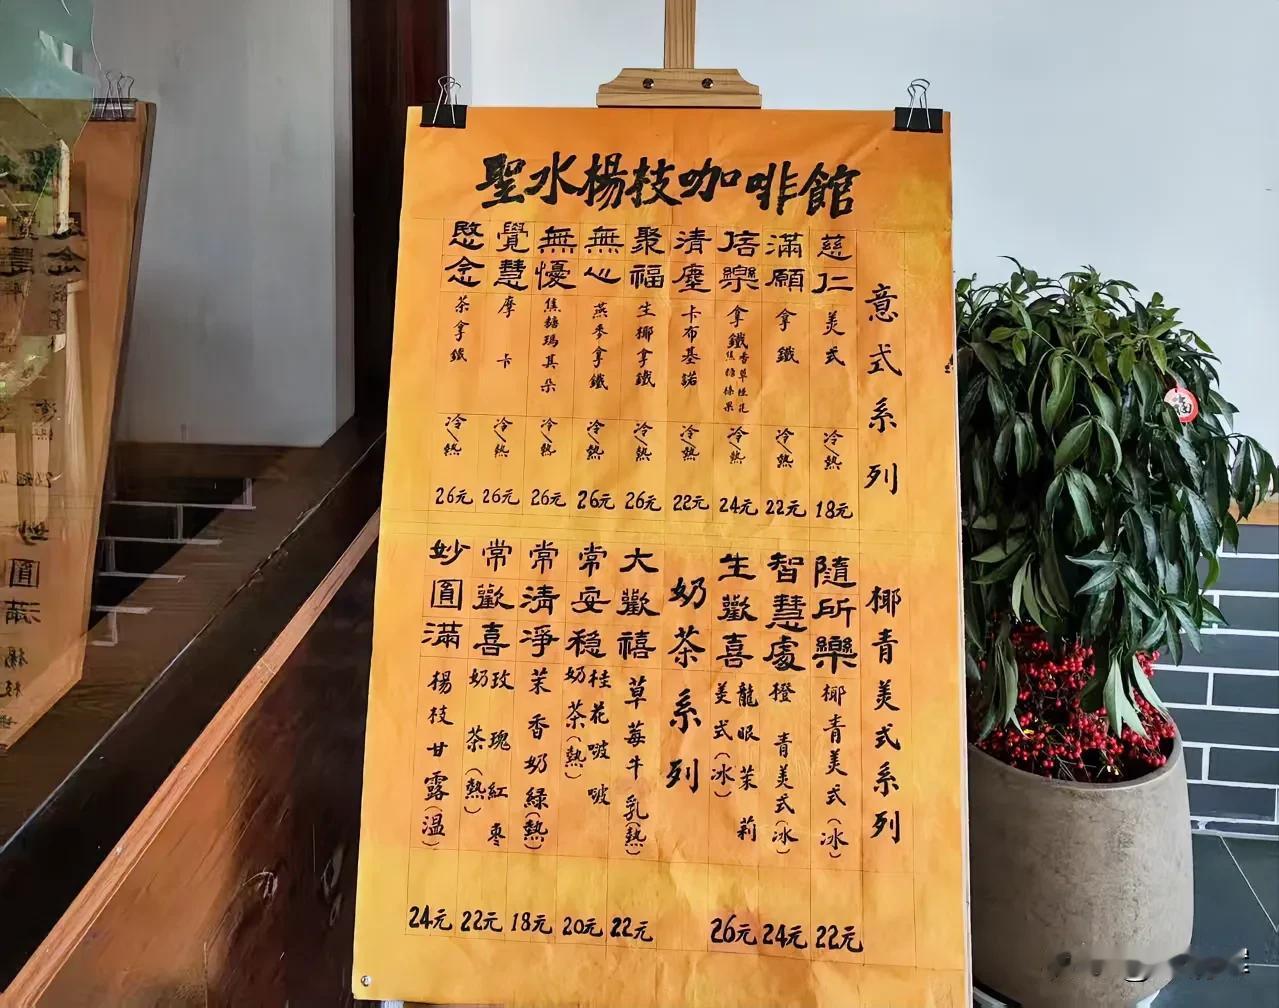 聖水楊枝咖啡館
意式系列
慈仁 美式 冷/熱 18元
滿願 拿鐵 冷/熱 22元
倍樂 拿鐵 香草 桂花 焦糖 榛果 冷/熱 24元
清塵 卡布基諾 冷/熱 22元
聚福 生椰拿鐵 冷/熱 26元
無心 燕麥拿鐵 冷/熱 26元
無憂 焦糖瑪其朵 冷/熱 26元
覺慧 摩卡 冷/熱 26元
愍念 茶拿鐵 冷/熱 26元
椰青美式系列
隨所樂 椰青美式(冰) 22元
智慧處 橙青美式(冰) 24元
生歡喜 龍眼茉莉美式(冰) 26元
奶茶系列
大歡禧 草莓牛乳(熱) 22元
常安穩 桂花啵啵奶茶(熱) 20元
常清淨 茉香奶綠(熱) 18元
常歡喜 玫瑰紅棗奶茶(熱) 22元
妙圓滿 楊枝甘露(溫) 24元
福